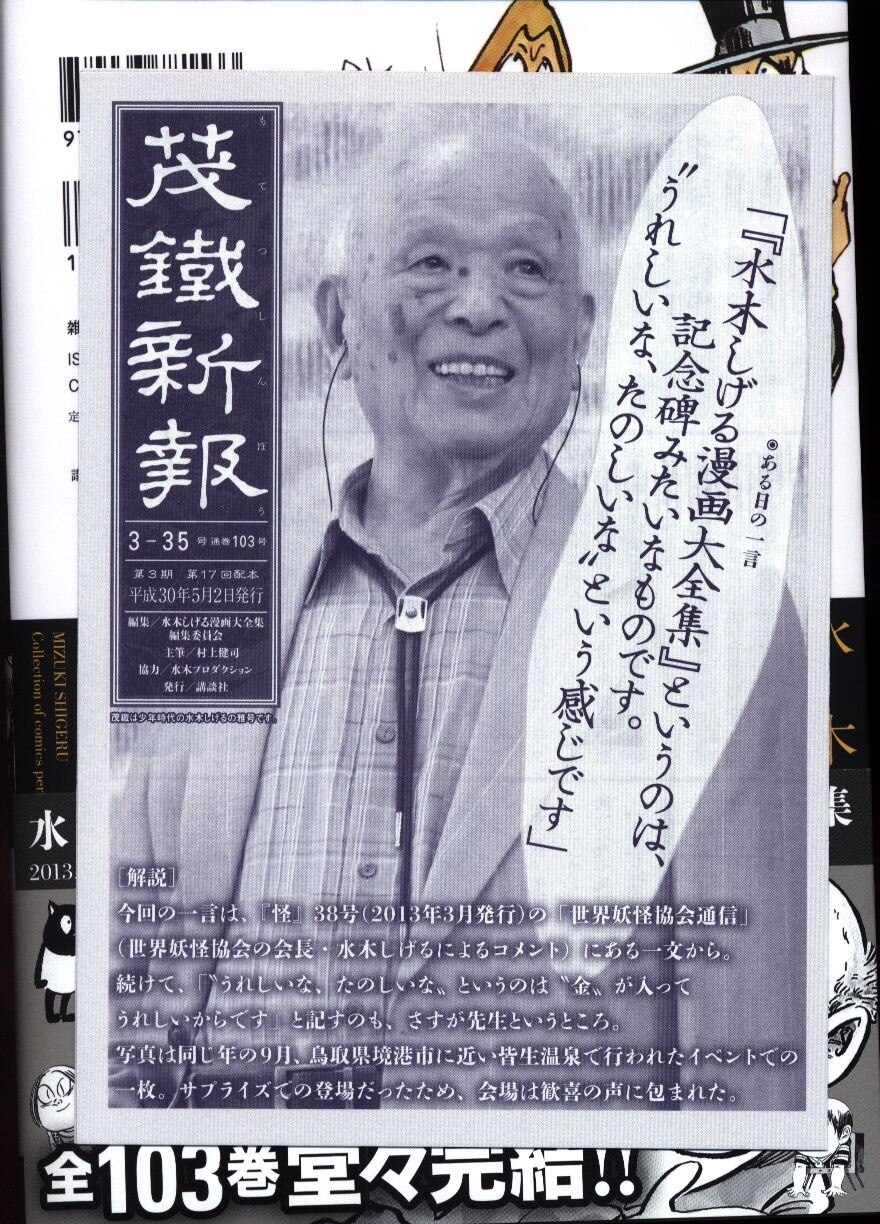 茂鐵新報
もてつしんぽう
3－35号 通巻103号
第3期／第17回配本
平成30年5月2日発行
編集／水木しげる漫画大全集
編集委員会
主筆／村上健司
協力／水木プロダクション
発行／講談社
茂鐵は少年時代の水木しげるの雅号です。
◉ある日の一言
「『水木しげる漫画大全集』というのは、
記念碑みたいなものです。
〝うれしいな、たのしいな〟という感じです」
［解説］
今回の一言は、『怪』38号（2013年3月発行）の「世界妖怪協会通信」
（世界妖怪協会の会長・水木しげるによるコメント）にある一文から。
続けて、「〝うれしいな、たのしいな〟というのは〝金〟が入って
うれしいからです」と記すのも、さすが先生というところ。
写真は同じ年の9月、鳥取県境港市に近い皆生温泉で行われたイベントでの
一枚。サプライズでの登場だったため、会場は歓喜の声に包まれた。
97
1
雑
IS
C
定
MIZUKI SHIGERU
Collection of comics per
水
2013.
水木
集
全103巻堂々完結!!